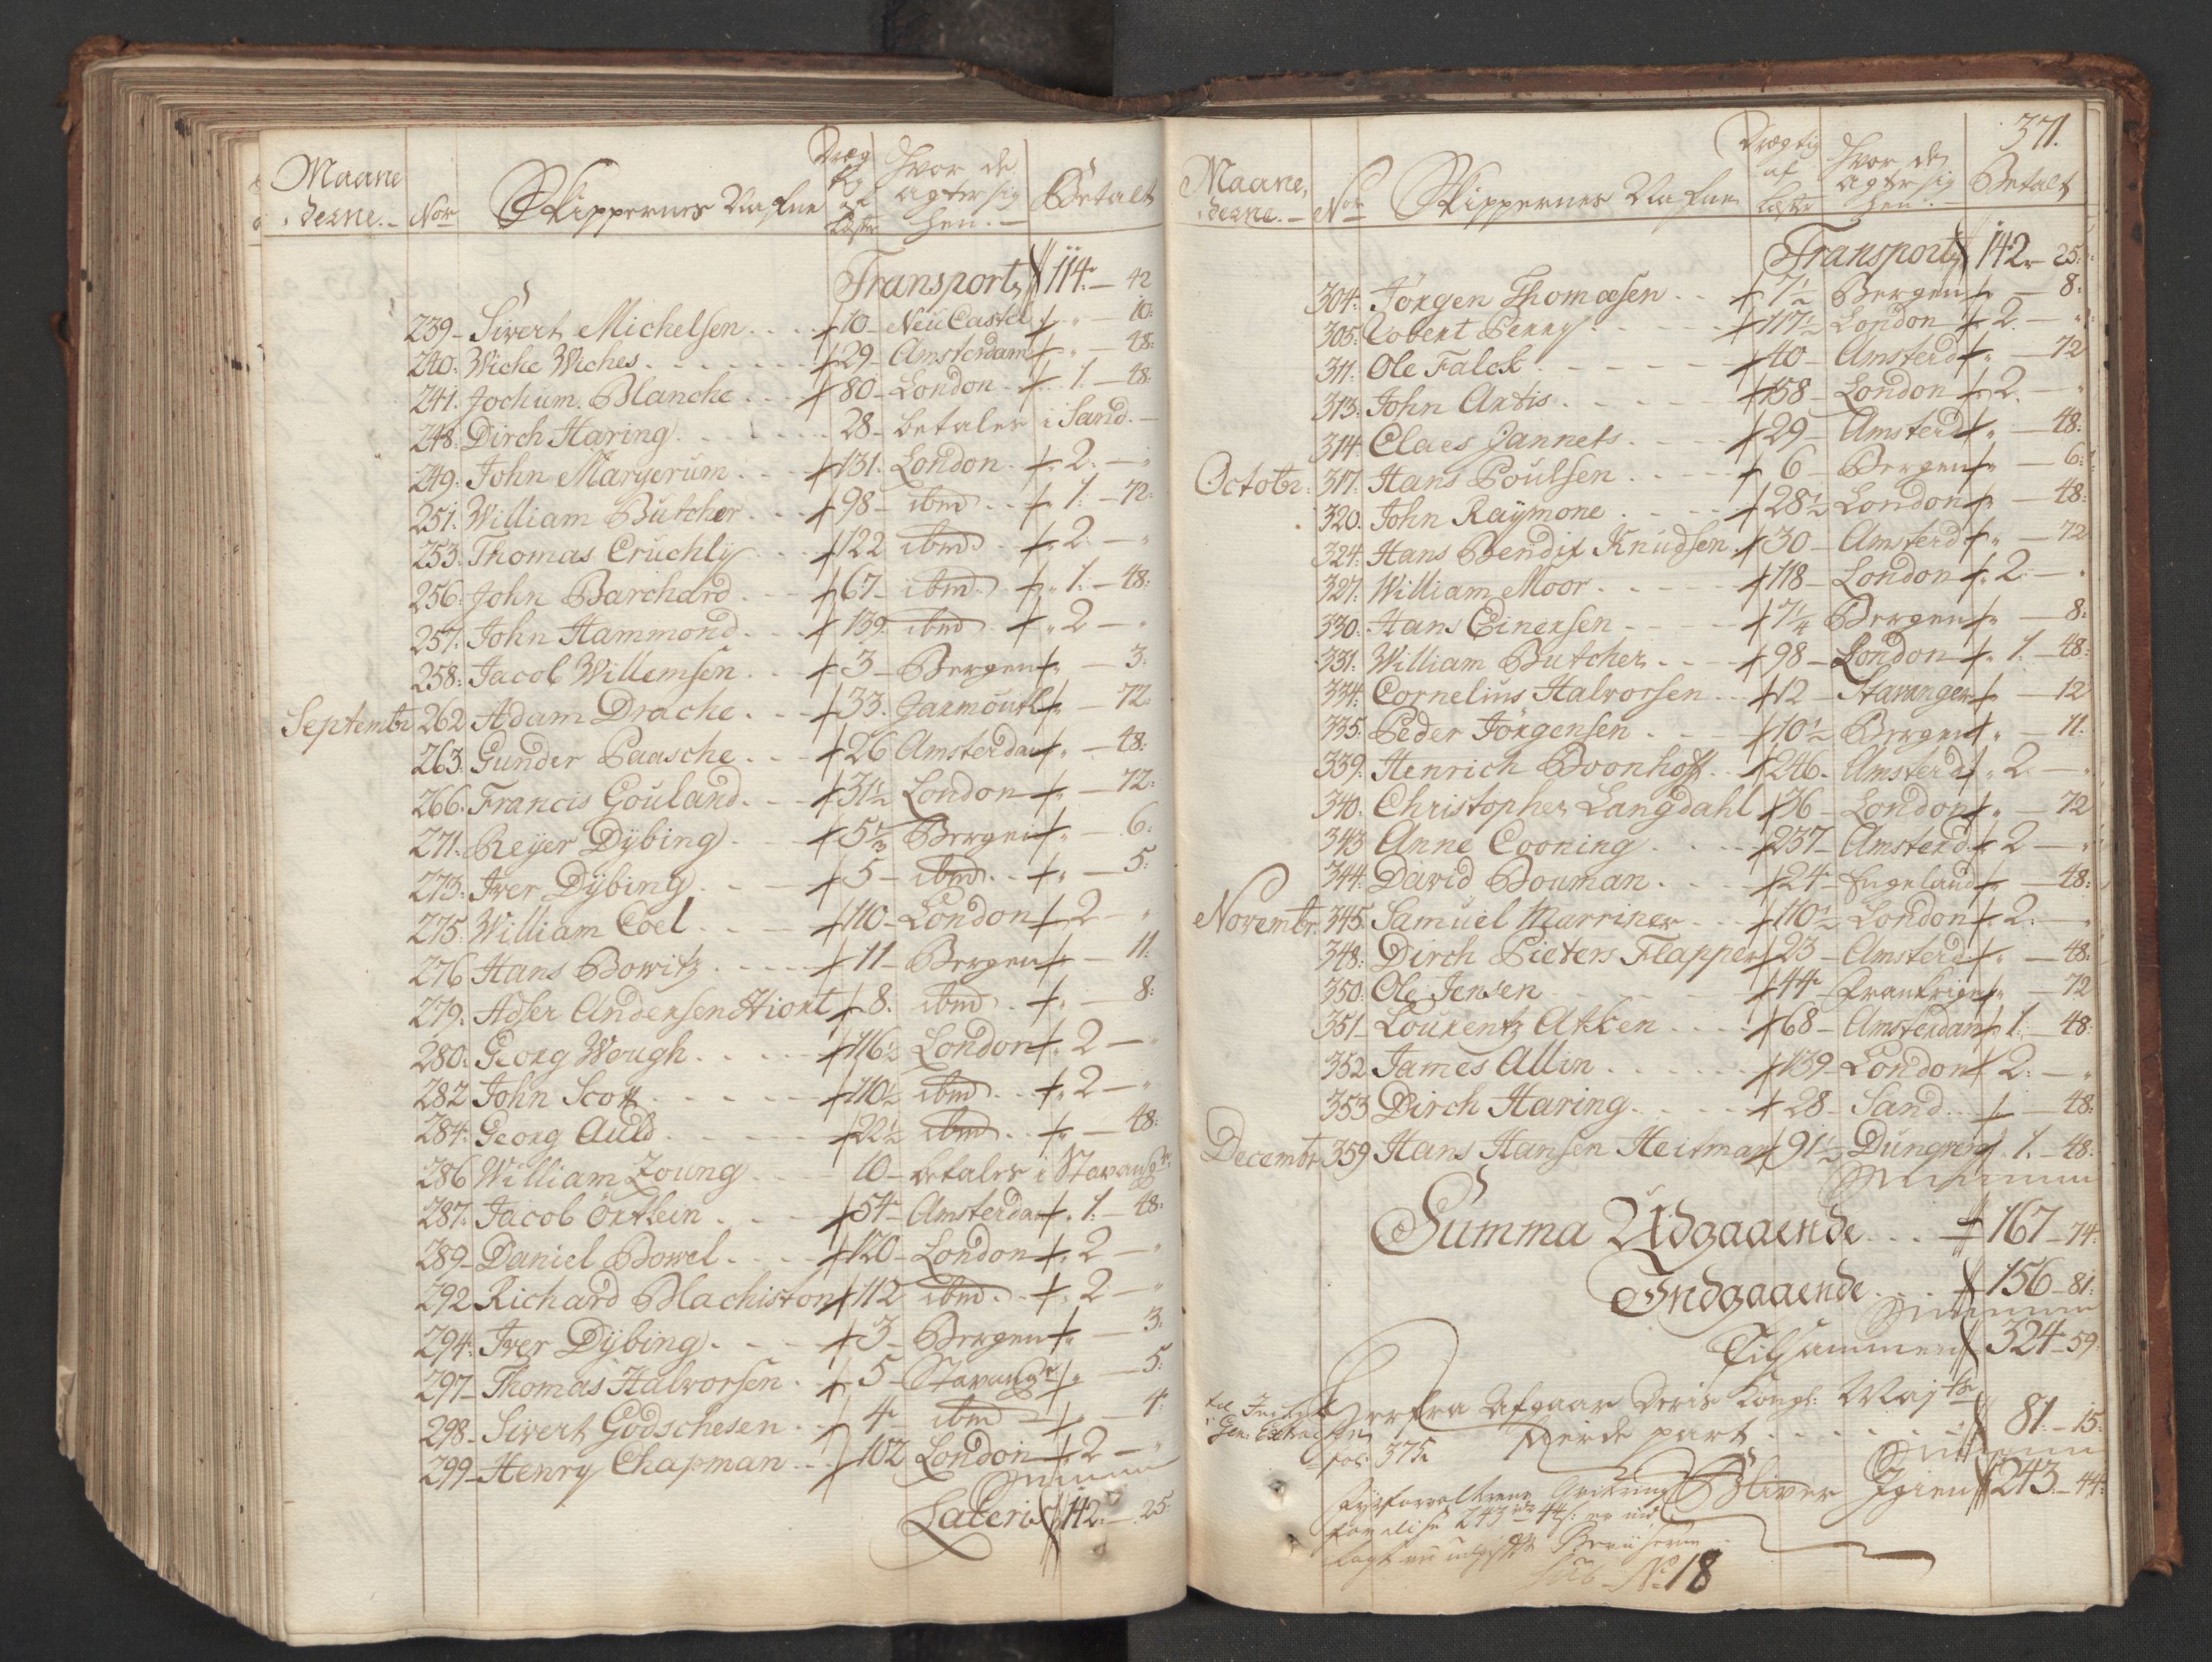 Maane
derne.- Nor Skippernes Nafne Dræg af Læster Hvor de agter sig hen.- Betalt
Transport 114.- 42
239- Sivert Michelsen 10- Neü Castel " - 10:
240: Wiche Wiches 29- Amsterdam " - 48:
241. Jochum Blanche 80- London 1.- 48:
248: Dirch Haring 28- betaler i Sand.-
249: John Margerum 131. London 2.- "
251: William Bütcher 98- ibm 1.- 72:
253: Thomas Crüchly 122 ibmd 2.- "
256: John Barchard 67- ibmd 1.- 48:
257: John Hammond 139. ibmd 2- "
258: Jacob Willemsen 3- Bergen - 3:
Septembr 262 Adam Drache 33. Jarmouth - 72:
263: Gunder Paasche 26 Amsterdam " - 48:
266. Francis Goüland 31½ London - 72:
271. Reyer Dÿbing 5⅔ Bergen " - 6:
273: Iver Dÿbing 5- ibmd " - 5:
275: William Coel 110- London 2- "
276 Hans Bowitz 11- Bergen - 11:
279. Adser Andersen Hiort 8: ibmd " - 8:
280: Georg Wough 116½ London 2- "
282 John Scott 110½ ibmd 2- "
284: Georg Auld 22½ ibmd - 48:
286 William Zoung 10- betaler i Stavangr:
287. Jacob Örtlein 54- Amsterdam 1.- 48:
289- Daniel Bowel 120- London 2- "
292 Richard Blachiston 112 ibmd 2- "
294: Iver Dÿbing 3- Bergen - 3:
297- Thomas Halvorsen 5- Stavangr - 5:
298- Sivert Godschesen 4- ibmd - 4:
299- Henry Chapman 102 London 2- "
Lateris 142.- 25.
371.
Maane,
derne.- Nor Skippernes Nafne Drægtig af Læster Hvor de agter sig hen.- Betalt
Transport 142- 25:
304: Jörgen Thomæsen 7½ Bergen - 8:
305: Robert Perry 117½ London 2.- "
311: Ole Falck 40- Amsterd " - 72
313: John Artis 158- London 2.- "
314: Claes Jannets 29- Amsterd " - 48:
Octobr: 317: Hans Poülsen 6- Bergen - 6:
320. John Raÿmone 28½ London - 48:
324: Hans Bendix Knudsen 30- Amsterd " - 72
327: William Moor 118- London 2.- "
330: Hans Einersen 7¼ Bergen - 8:
331: William Butcher 98- London 1.- 48:
334: Cornelius Halvorsen 12- Stavanger - 12
335: Peder Jörgensen 10½ Bergen " - 11:
339: Henrich Boonhoff 246- Amsterd 2.- "
340. Christopher Langdahl 36- London " - 72
343 Anne Cooning 237- Amsterd 2- "
344: David Bouman 24- Engeland - 48:
Novembr: 345: Samuel Marriner 110½ London 2.- "
348: Dirch Pieters Flapper 23- Amsterd " - 48:
350: Ole Jensen 44- Frankrige - 72
351- Lourentz Atken 68- Amsterdam 1.- 48:
352 James Allin 139 London 2.- "
353 Dirch Haring 28- Sand - 48:
Decembr 359 Hans Hansen Heitman 91½ 1.- 48:
Summa Udgaaende 167- 74:
Indgaaende 156- 81:
Tilsammen 324- 59:
Herfra Afgaar Deris Kongl: Mayts
fierde part 81.- 15:
fol: 375.
Bliver Igien 243.- 44:
243 rdr 44 s: er ind
lagt
sub No 18